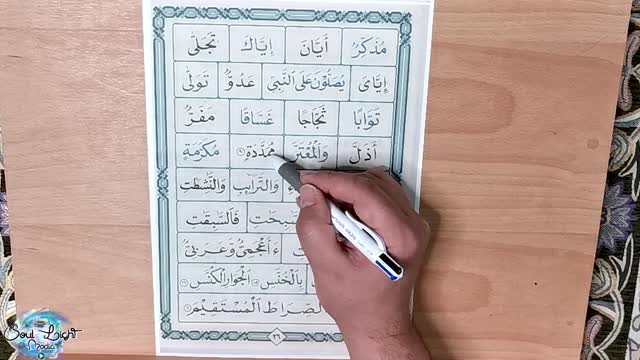 مُذَكِّرٌ أَيَّانَ إِيَّاكَ تَجَلّٰى
إِيَّاىَ يُصَلُّوْنَ عَلَى النَّبِيِّ عَدُوٌّ تَوَلّٰى
تَوَّابًا ثَجَّاجًا غَسَّاقًا مَفَرُّ
أَذَلَّ وَالْمُعْتَرَّ مُّمَدَّدَةٍ ۹ مُكَرَّمَةٍ
وَالتَّرَآئِبِ وَالنّٰشِطٰتِ
فَالسّٰبِقٰتِ
ءَاَعْجَمِىٌّ وَّعَرَبِىٌّ
بِالْخُنَّسِ الْجَوَارِ الْكُنَّسِ
الصِّرَاطَ الْمُسْتَقِيْمَ
٢٦
Soul Light
Media